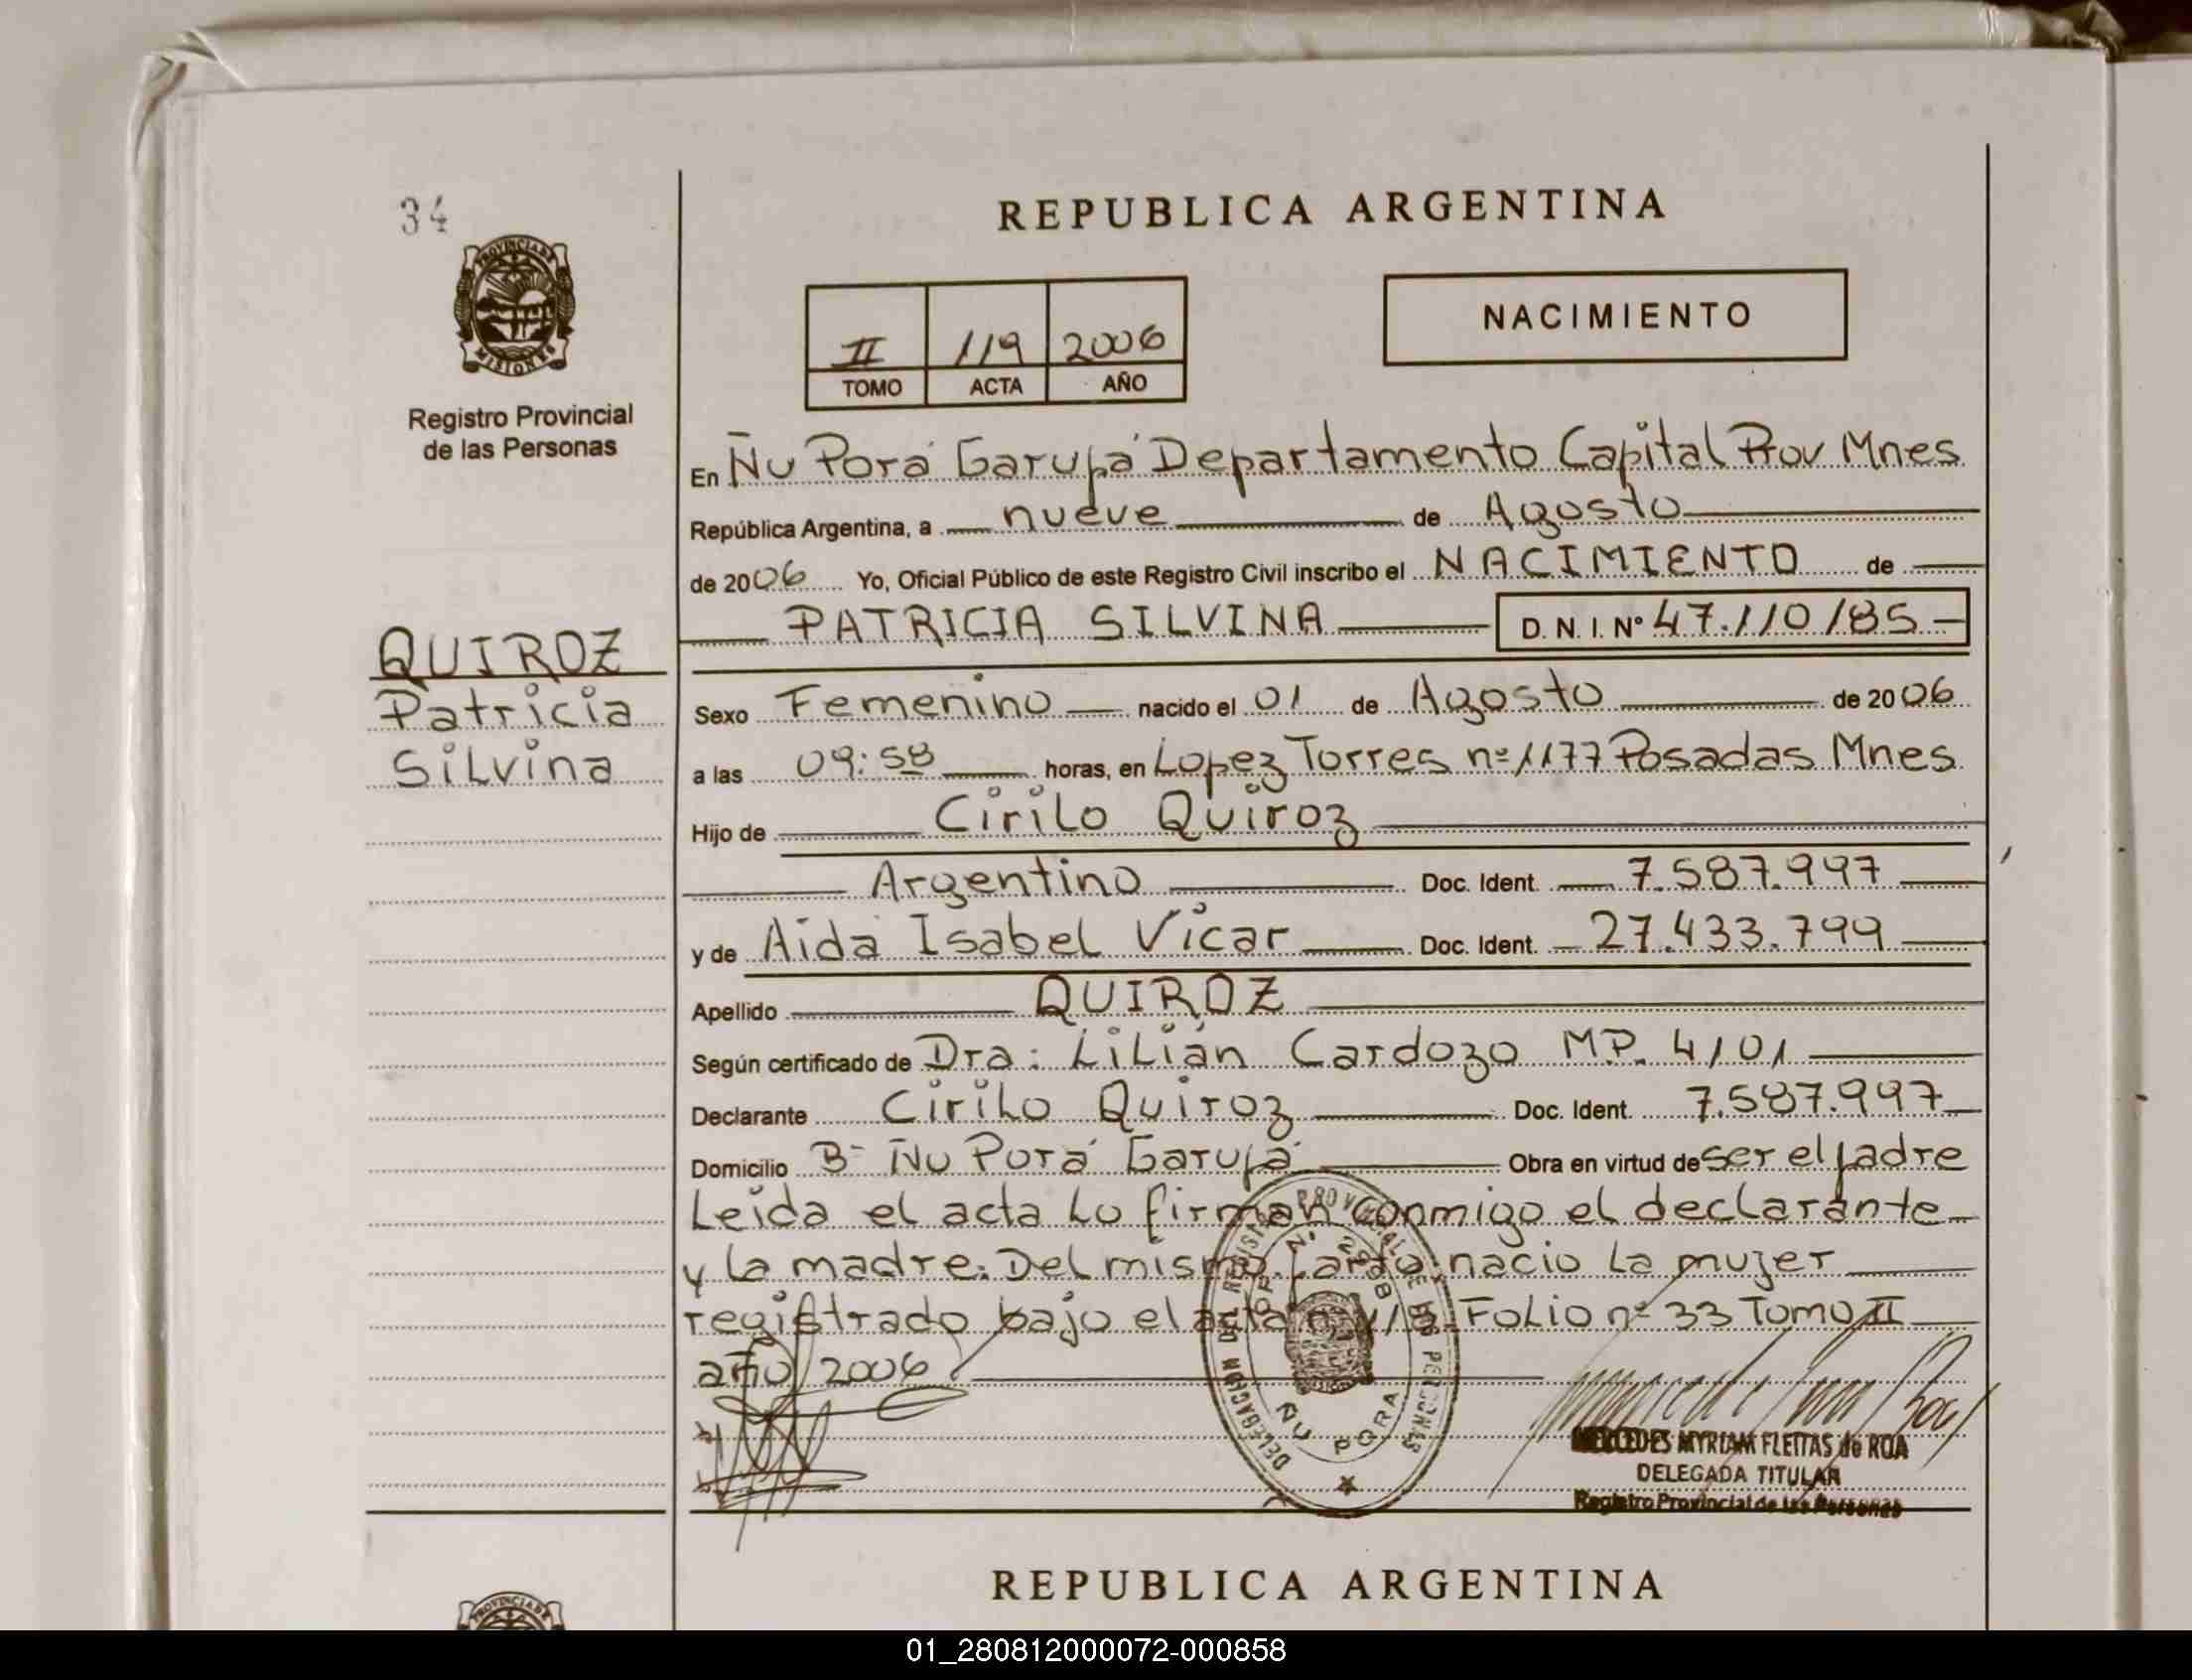 34
PROVINCIA DE
MISIONES
Registro Provincial
de las Personas
REPUBLICA ARGENTINA
II 119 2006
TOMO ACTA AÑO
NACIMIENTO
En Ñu Porá Garupá Departamento Capital Prov Mnes
República Argentina, a nueve de Agosto
de 2006 Yo, Oficial Público de este Registro Civil inscribo el NACIMIENTO de
PATRICIA SILVINA D.N.I. Nº 47.110185
QUIROZ
Patricia
Silvina
Sexo Femenino nacido el 01 de Agosto de 2006
a las 09:58 horas, en Lopez Torres nº 1177 Posadas Mnes
Hijo de Cirilo Quiroz
Argentino Doc. Ident. 7.587.997
y de Aida Isabel Vicar Doc. Ident. 27.433.799
Apellido QUIROZ
Según certificado de Dra: Lilián Cardozo MP. 4101
Declarante Cirilo Quiroz Doc. Ident. 7.587.997
Domicilio Bº Ñu Porá Garupá Obra en virtud de ser el padre
Leida el acta lo firman conmigo el declarante
y la madre. Del mismo parto nacio la mujer
registrado bajo el acta Folio nº 33 Tomo II
año 2006
DELEGACION DEL REGISTRO PROVINCIAL DE LAS PERSONAS
ÑU PORA
MERCEDES MYRIAM FLEITAS de ROA
DELEGADA TITULAR
Registro Provincial de las Personas
REPUBLICA ARGENTINA
PROVINCIA DE
01_280812000072-000858